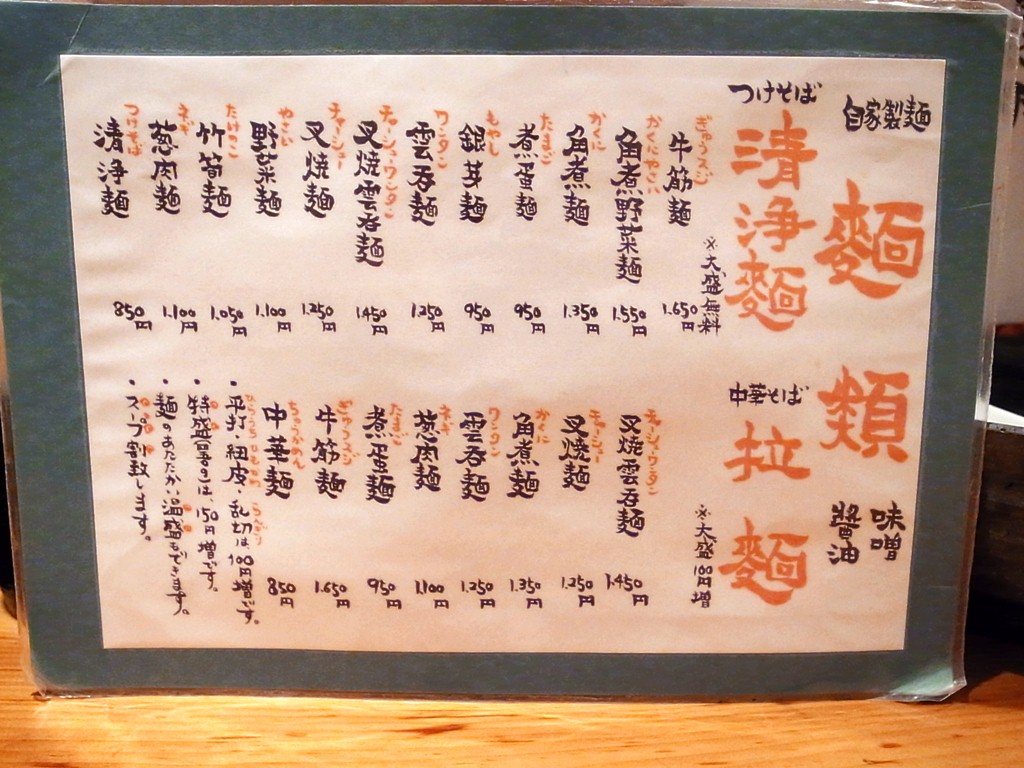 自家製麺
麵類
味噌
醬油
つけそば
清浄麵
※大盛無料
ぎゅうスジ
牛筋麺
1.650円
かくにやさい
角煮野菜麺
1.550円
かくに
角煮麺
1.350円
たまご
煮蛋麺
950円
もやし
銀芽麺
950円
ワンタン
雲呑麺
1.250円
チャーシューワンタン
叉焼雲呑麺
1.450円
チャーシュー
叉焼麺
1.250円
やさい
野菜麺
1.100円
たけのこ
竹筍麺
1.050円
ネギ
葱肉麺
1.100円
つけそば
清浄麺
850円
中華そば
拉麵
※大盛100円増
チャーシューワンタン
叉焼雲呑麺
1.450円
チャーシュー
叉焼麺
1.250円
かくに
角煮麺
1.350円
ワンタン
雲呑麺
1.250円
ネギ
葱肉麺
1.100円
たまご
煮蛋麺
950円
ぎゅうスジ
牛筋麺
1.650円
ちゅうかめん
中華麺
850円
・平打・紐皮・乱切は、100円増です。
・特盛は、150円増です。
・麺のあたたかい温盛もできます。
・スープ割致します。